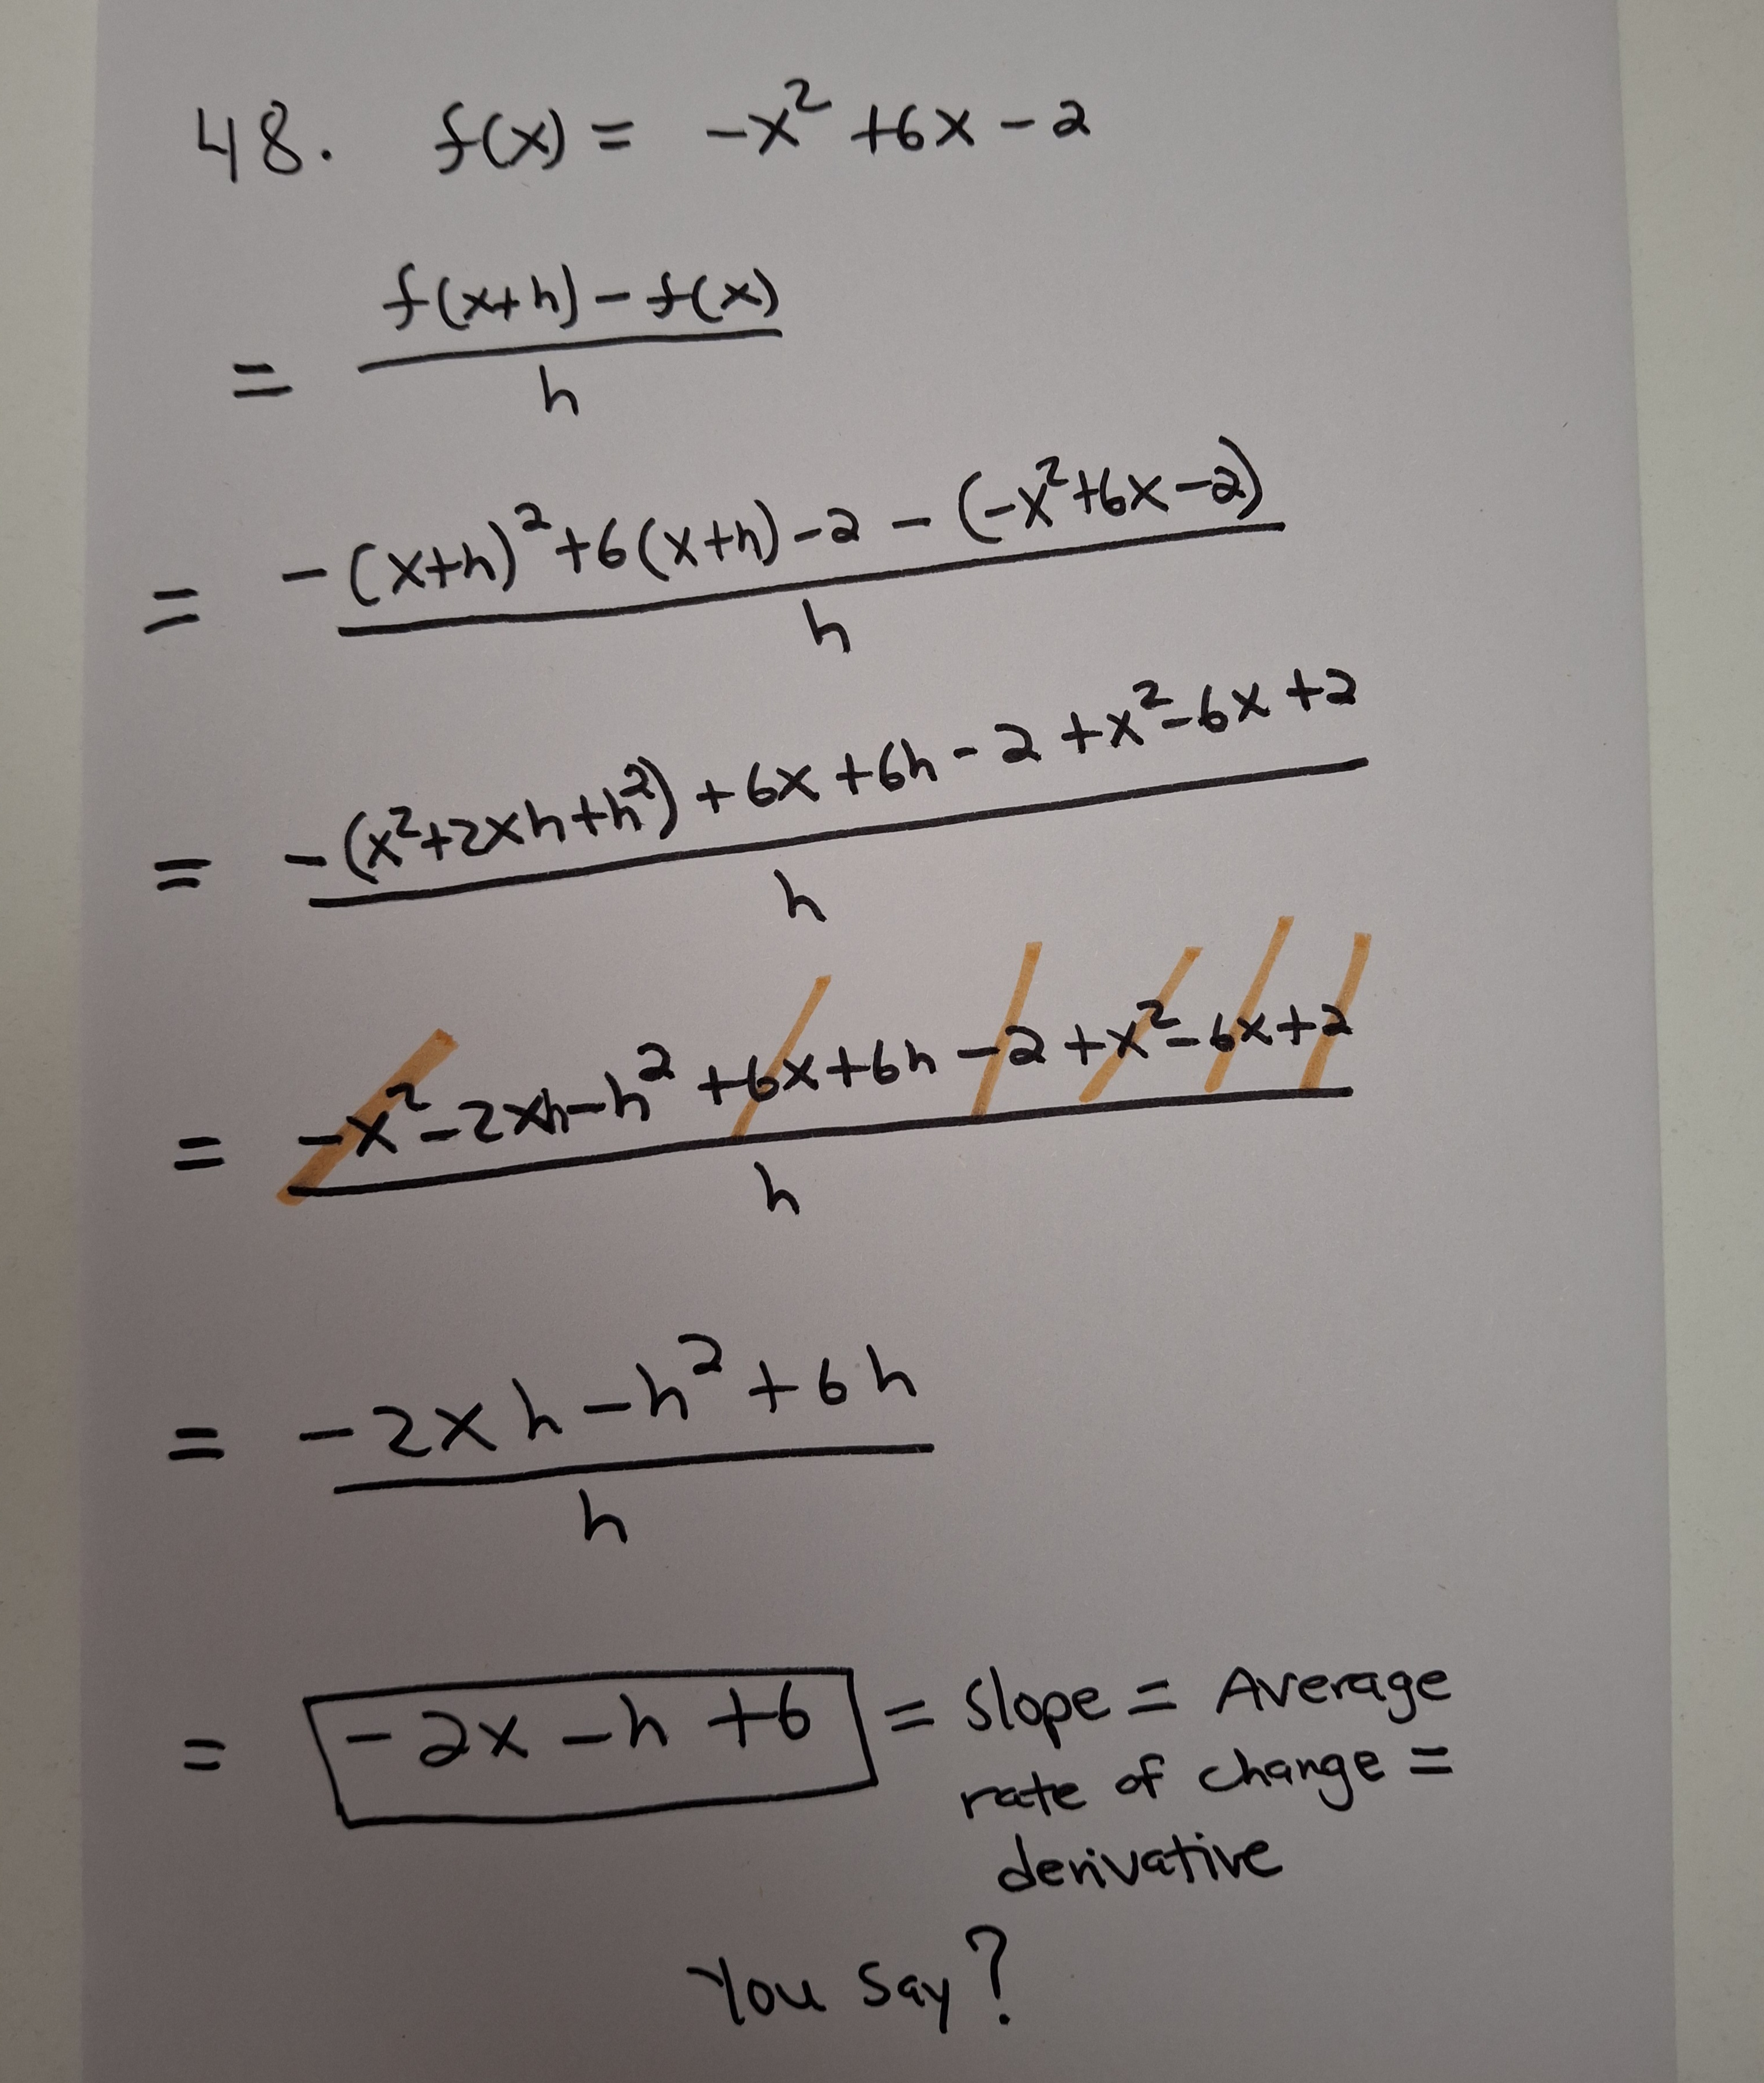 48. f(x) = -x² + 6x - 2
= f(x+h) - f(x)
h
= -(x+h)² + 6(x+h) - 2 - (-x² + 6x - 2)
h
= -(x² + 2xh + h²) + 6x + 6h - 2 + x² - 6x + 2
h
= -x² - 2xh - h² + 6x + 6h - 2 + x² - 6x + 2
h
= -2xh - h² + 6h
h
= -2x - h + 6 = Slope = Average
rate of change =
derivative
You say?